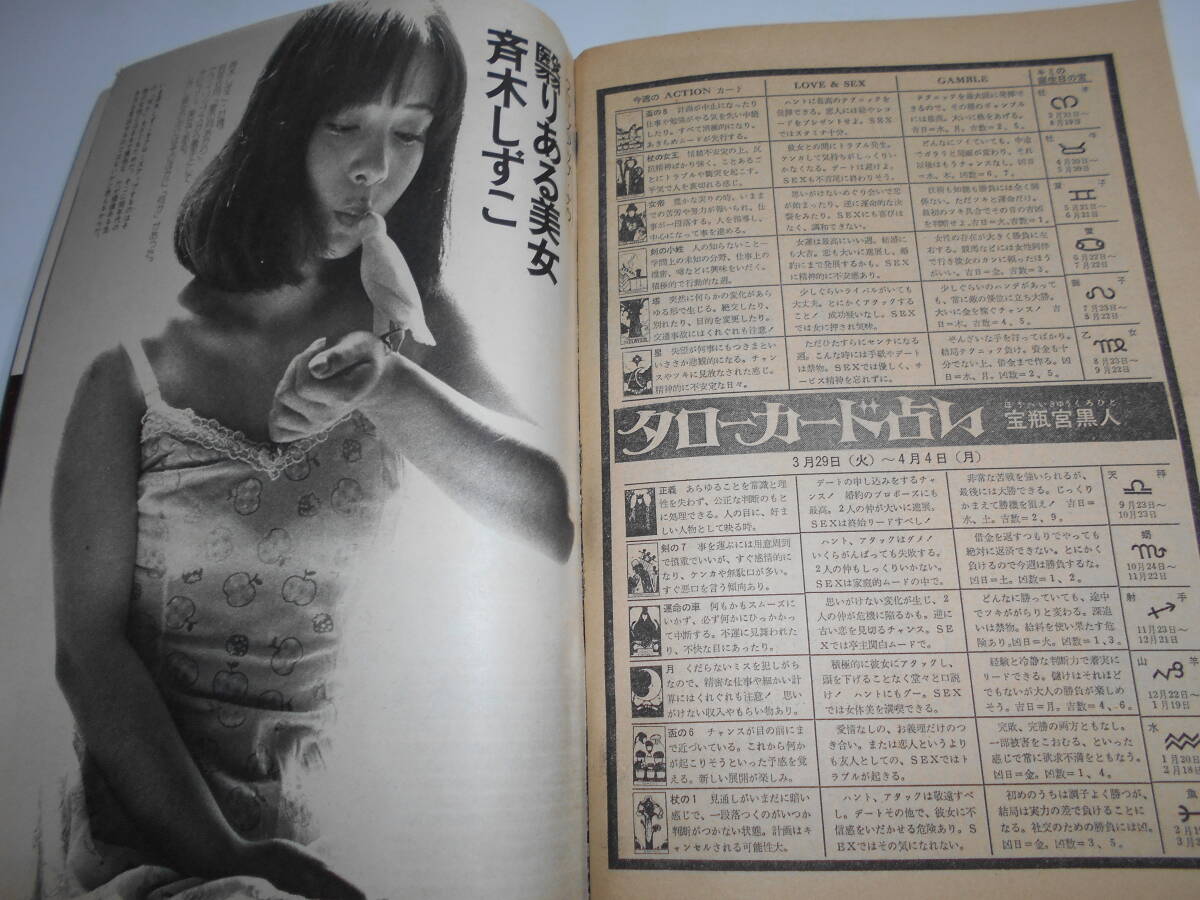 翳りある美女
斉木しずこ
今週の ACTION カード
LOVE & SEX
GAMBLE
キミの
誕生日の宮
盃の8 計画が中止になったり
仕事や勉強がやる気を失い中絶
したり。すべて消極的になり、
あきらめムードが先行する。
ハントに最高のテクニックを
発揮できる。恋人には絵やレコ
ードをプレゼントせよ。SEX
ではスタミナ十分。
テクニックを最大限に発揮で
きるので、その種のギャンブル
には最高。大いに株をあげる。
吉日=水、月。吉数=2、5。
牡羊
3月21日〜
4月19日
杖の女王 情緒不安定の上、反
抗精神ばかり強く、ことあるご
とにトラブルや衝突を起こす。
平気で人を裏切れる感じ。
彼女との間にトラブル発生。
ケンカして気持がしっくりい
かなくなる。デートは避けよ。
SEXも不首尾に終わりそう。
どんなにツイていても、中途
でガラリと局面が変わり、それ
以後はもうチャンスなし。凶日
=水、木。凶数=6、7。
牡牛
4月20日〜
5月20日
女帝 豊かな実りの時。いまま
での苦労や努力が報いられ、仕
事が一段落する。人を指導し、
中心になって事を進める。
思いがけないめぐり会いで恋
が始まったり、逆に運命的な決
裂をみたり。SEXにも喜びは
なく、満和できない。
技術も知識も勝負には全く関
係ない。ただツキと運命だけ。
最初のツキ具合でその日の吉凶
を判断せよ。吉日=火。吉数=1。
双子
5月21日〜
6月21日
剣の小姓 人の知らないこと—
学問上の未知の分野、仕事上の
機密、噂などに興味をいだく。
積極的で行動的な週。
女運は最高にいい週。結婚に
も大吉。恋も大いに進展し、婚
約にまで発展するかも。SEX
に精神的に不安感あり。
女性の存在が大きく勝負に左
右する。競馬などには女性同伴
で行き彼女のカンに頼ったほう
がいい。吉日=金。吉数=3。
蟹
6月22日〜
7月22日
塔 突然に何らかの変化があら
ゆる形で生じる。絶交したり、
別れたり、目的を変更したり。
交通事故にはくれぐれも注意!
少しぐらいライバルがいても
大丈夫。とにかくアタックする
こと! 成功疑いなし。SEX
では女に押され気味。
少しぐらいのハンデがあって
も、常に敵の優位に立ち大勝。
大いに金を稼ぐチャンス! 吉
日=木。吉数=4、5。
獅子
7月23日〜
8月22日
星 失望が何事にもつきまとい
いささか悲観的になる。チャン
スやツキに見放なされた感じ。
精神的に不安定な日々。
ただひたすらにセンチになる
週。こんな時には手紙やデート
は禁物。SEXでは優しく、サ
ービス精神を忘れずに。
ぞんざいな手を打ってばかり。
結局テクニック負け。資金も十
分でない上、借金まで作る。凶
日=水、月。凶数=2、5。
乙女
8月23日〜
9月22日
タローカード占い
ほうへいきゅうくろひと
宝瓶宮黒人
3月29日(火)〜4月4日(月)
正義 あらゆることを常識と理
性を失わず、公正な判断のもと
に処理できる。人の目に、好ま
しい人物として映る時。
デートの申し込みをするチャ
ンス! 婚約のプロポーズにも
最高。2人の仲が大いに進展。
SEXは終始リードすべし!
非常な苦戦を強いられるが、
最後には大勝できる。じっくり
かまえて勝機を狙え! 吉日=
水、土。吉数=2、9。
天秤
9月23日〜
10月23日
剣の7 事を運ぶには用意周到
で慎重でいいが、すぐ感情的に
なり、ケンカや無駄口が多い。
すぐ悪口を言う傾向あり。
ハント、アタックはダメ!
いくらがんばっても失敗する。
2人の仲もしっくりいかない。
SEXは家庭的ムードの中で。
借金を返すつもりでやっても
絶対に返済できない。とにかく
負けるので今週は勝負するな。
凶日=土。凶数=1、2。
蠍
10月24日〜
11月22日
運命の車 何もかもスムーズに
いかず、必ず何かにひっかかっ
て中断する。不運に見舞われた
り、不快な目にあったり。
思いがけない変化が生じ、2
人の仲が危機に陥るかも。逆に
古い恋を見切るチャンス。SE
Xでは亭主関白ムードで。
どんなに勝っていても、途中
でツキががらりと変わる。深追
いは禁物。給料を使い果たす危
険あり。凶日=火。凶数=1、3。
射手
11月23日〜
12月21日
月 くだらないミスを犯しがち
なので、精密な仕事や細かい計
算にはくれぐれも注意! 思い
がけない収入やもらい物あり。
積極的に彼女にアタックし、
頭を下げることなく堂々と口説
け! ハントにもグー。SEX
では女体美を満喫できる。
経験と冷静な判断力で着実に
リードできる。儲けはそれほど
でもないが大人の勝負が楽しめ
そう。吉日=月。吉数=4、6。
山羊
12月22日〜
1月19日
盃の6 チャンスが目の前にま
で近づいている。これから何か
が起こりそうといった予感を覚
える。新しい展開が楽しみ。
愛情なしの、お義理だけのつ
き合い。または恋人というより
も友人としての、SEXではト
ラブルが起きる。
完敗、完勝の両方ともなし。
一部被害をこおむる、といった
感じで常に欲求不満をともなう。
凶日=金。凶数=1、4。
水
1月20日
2月18日
杖の1 見通しがいまだに暗い
感じで、一段落つくのがいつか
判断がつかない状態。計画はキ
ャンセルされる可能性大。
ハント、アタックは敬遠すべ
し。デートその他で、彼女に不
信感をいだかせる危険あり。S
EXではその気になれない。
初めのうちは調子よく勝つが、
結局は実力の差で負けることに
なる。社交のための勝負には凶。
凶日=金。凶数=3、5。
魚
2月19
3月2